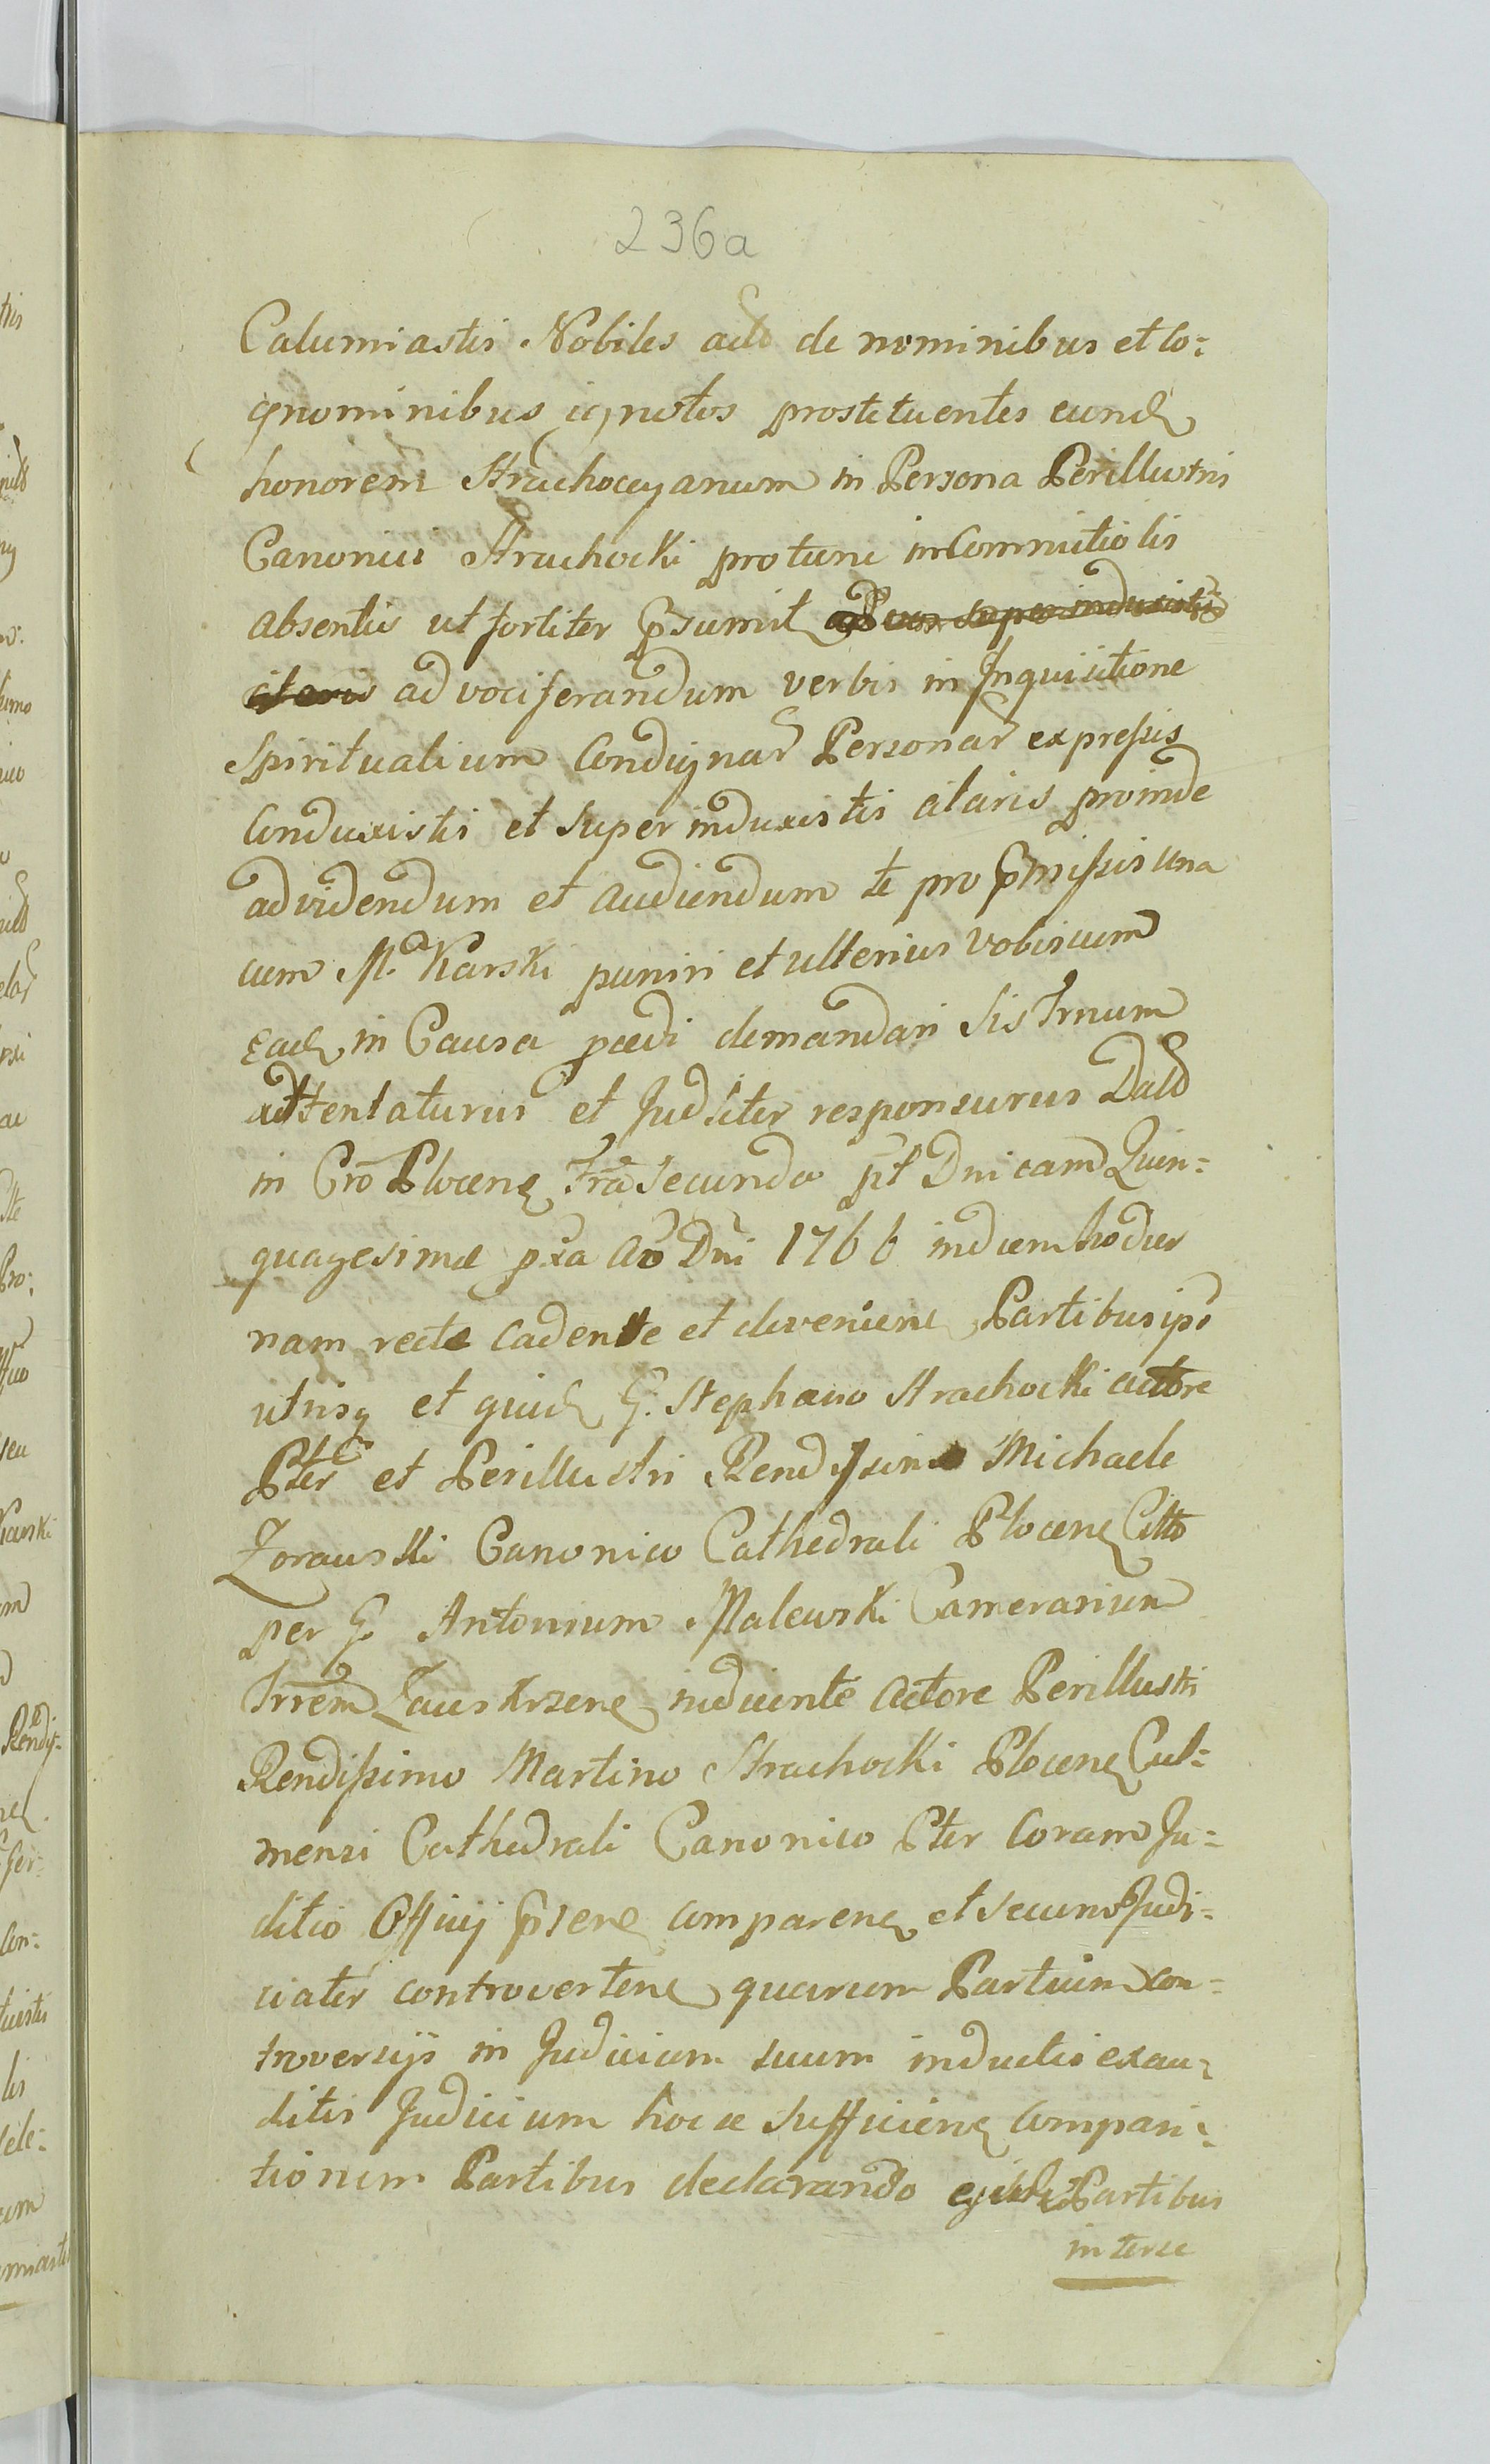 236a
Calumniastis Nobiles acto de nominibus et Co=
gnominibus ignotos prostituentes eund
honorem Strachocyanum in Persona Perillustris
Canonici Strachocki protunc in Commitiolis
absentis ut fortiter psumit ad superinduxistis
citaris ad vociferandum verbis in Inquisitione
Spiritualium Condignar Personar expressis
Conduxistis et superinduxistis citaris proinde
ad videndum et audiendum te pro pmissis una
cum M. Karski puniri et ulterius vobiscum
ead in Causa pcedi demandari sis Trnum
attentaturus et Juditer responsurus Datt
in Cro Plocen Fra Secunda pt Dnicam Quin=
quagesimæ pxa Ao Dni 1766 in diem hodier
nam recte cadente et devenien Partibus ipis
utrisq et quid G. Stephano Strachocki actore
Pter et Perillustri Rendissimo Michaele
Zorawski Canonico Cathedrali Plocen Citto
per G. Antonium Malewski Camerarium
Trrem Zauskrzen inducente actore Perillustri
Rendissimo Martino Strachocki Plocen Cul=
mensi Cathedrali Canonico Pter Coram Ju=
ditio Officij psen comparen et secum Judi=
cialer controverten quarum Partium con=
troversijs in Judicium suum inductis exau=
ditis Judicium hocce sufficien Compari=
tionem Partibus declarando ejisd Partibus
interse